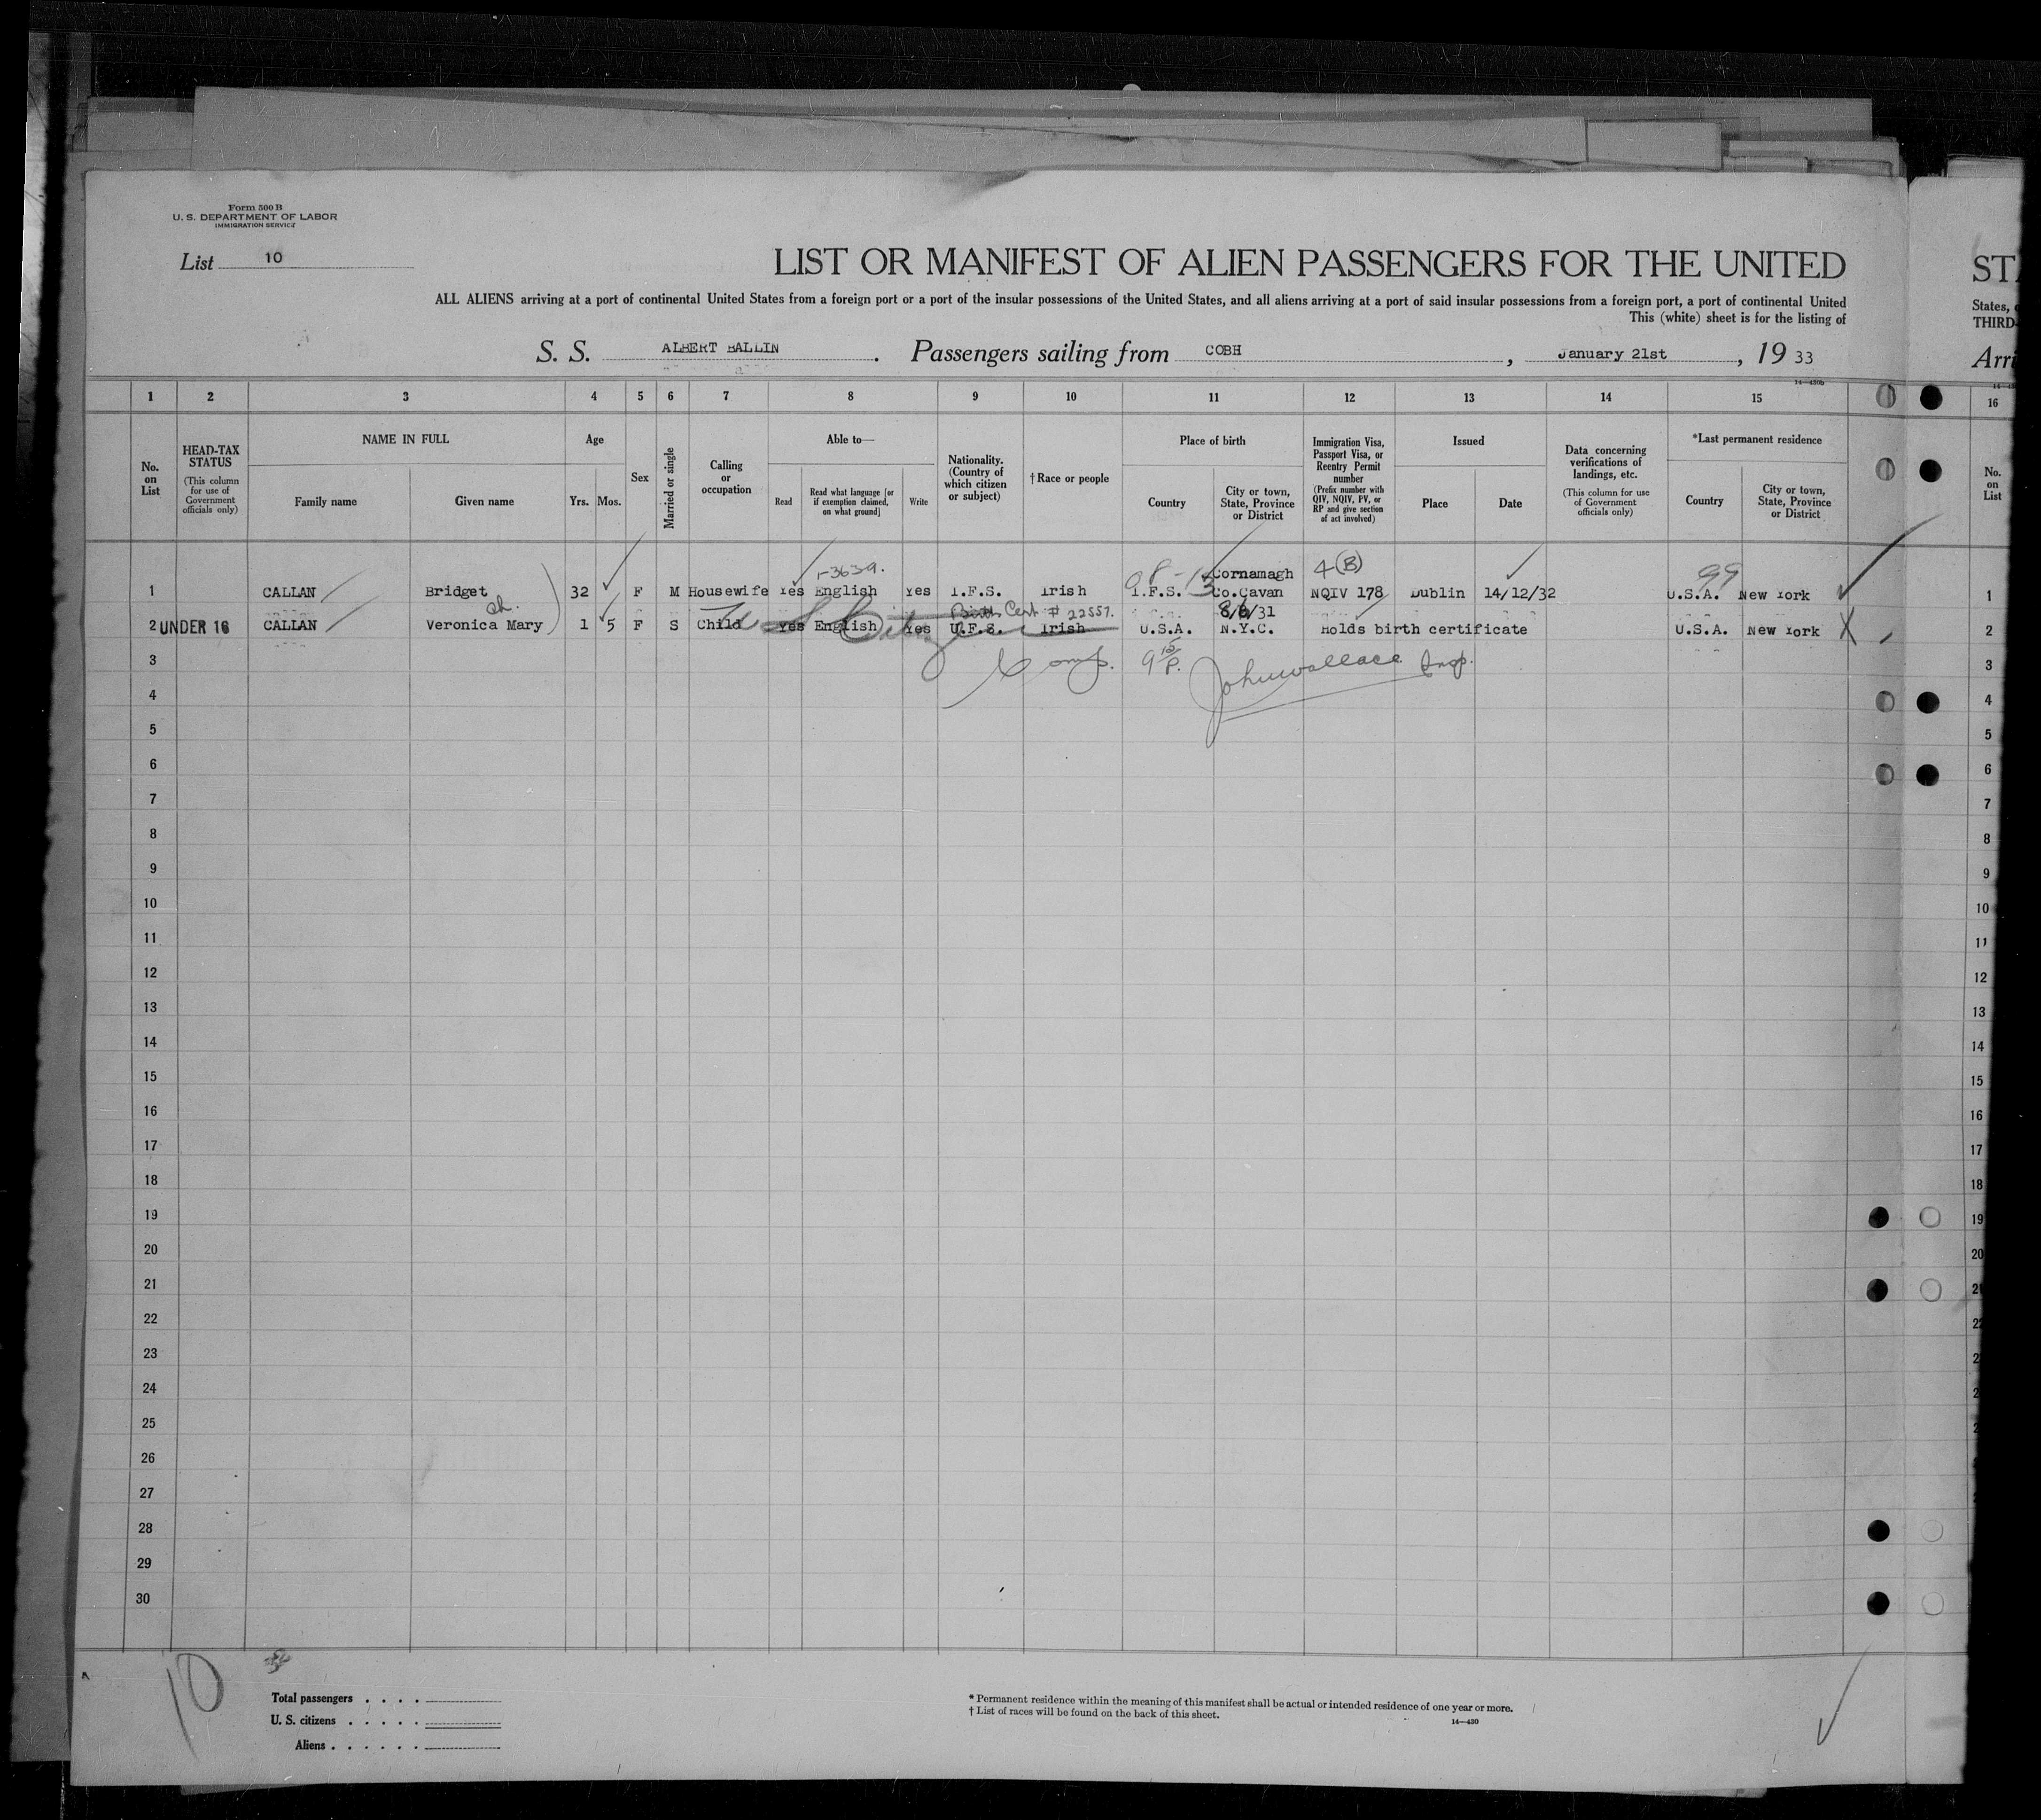 Form 500 B
U. S. DEPARTMENT OF LABOR
IMMIGRATION SERVICE
List 10
LIST OR MANIFEST OF ALIEN PASSENGERS FOR THE UNITED
ST
ALL ALIENS arriving at a port of continental United States from a foreign port or a port of the insular possessions of the United States, and all aliens arriving at a port of said insular possessions from a foreign port, a port of continental United
States,
This (white) sheet is for the listing of
THIRD-
S. S. ALBERT BALLIN . Passengers sailing from COBH , January 21st , 19 33
Arri
14—430b
1 2 3 4 5 6 7 8 9 10 11 12 13 14 15 16
No. on List
HEAD-TAX STATUS (This column for use of Government officials only)
NAME IN FULL
Family name Given name
Age
Yrs. Mos.
Sex
Married or single
Calling or occupation
Able to—
Read Read what language [or if exemption claimed, on what ground] Write
Nationality. (Country of which citizen or subject)
† Race or people
Place of birth
Country City or town, State, Province or District
Immigration Visa, Passport Visa, or Reentry Permit number (Prefix number with QIV, NQIV, PV, or RP and give section of act involved)
Issued
Place Date
Data concerning verifications of landings, etc. (This column for use of Government officials only)
*Last permanent residence
Country City or town, State, Province or District
No. on List
-3639. Cornamagh 4(B) 99
1 CALLAN Bridget 32 F M Housewife Yes English Yes I.F.S. Irish I.F.S. Co.Cavan NQIV 178 Dublin 14/12/32 U.S.A. New York 1
ch. Birth Cert # 22557. 8/8/31
2 UNDER 16 CALLAN Veronica Mary 1 5 F S Child Yes English Yes U.F.S. Irish U.S.A. N.Y.C. Holds birth certificate U.S.A. New York X 2
U S Citizen
3 Comp. John Wallace Insp. 3
4 4
5 5
6 6
7 7
8 8
9 9
10 10
11 11
12 12
13 13
14 14
15 15
16 16
17 17
18 18
19 19
20 20
21 2
22 2
23 2
24 2
25 2
26
27
28
29
30
10
Total passengers . . . .
U. S. citizens . . . . .
Aliens . . . . . .
* Permanent residence within the meaning of this manifest shall be actual or intended residence of one year or more.
† List of races will be found on the back of this sheet.
14—430